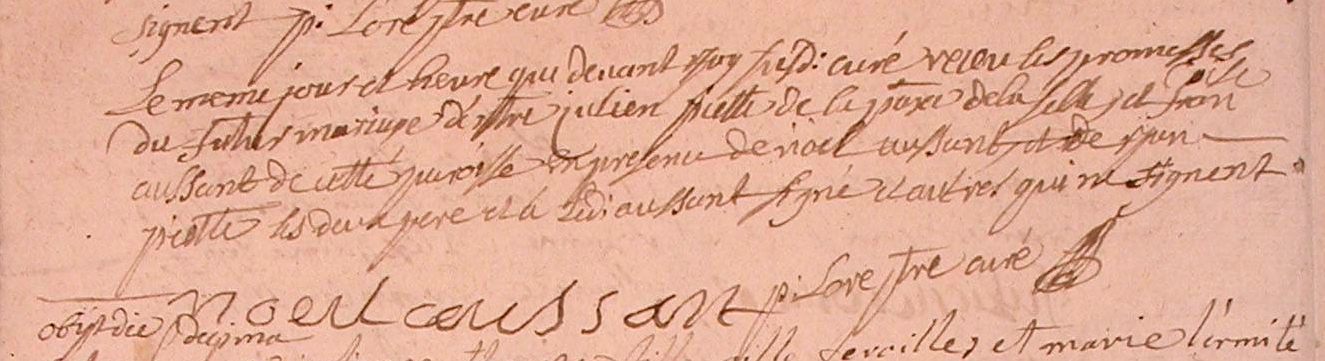 signent pi: Lorestre curé
Le meme jour et heure que devant moy susd: curé receu les promesses
du futur mariage d'entre julien piette de la parse de la selle et Fran
aussant de cette paroisse en presence de noel aussant et de jan
piette les deux pere et a ledi aussant signé et autres qui ne signent
noeul aussant pi: Lorestre curé
obijt die septima
et marie l'ermite